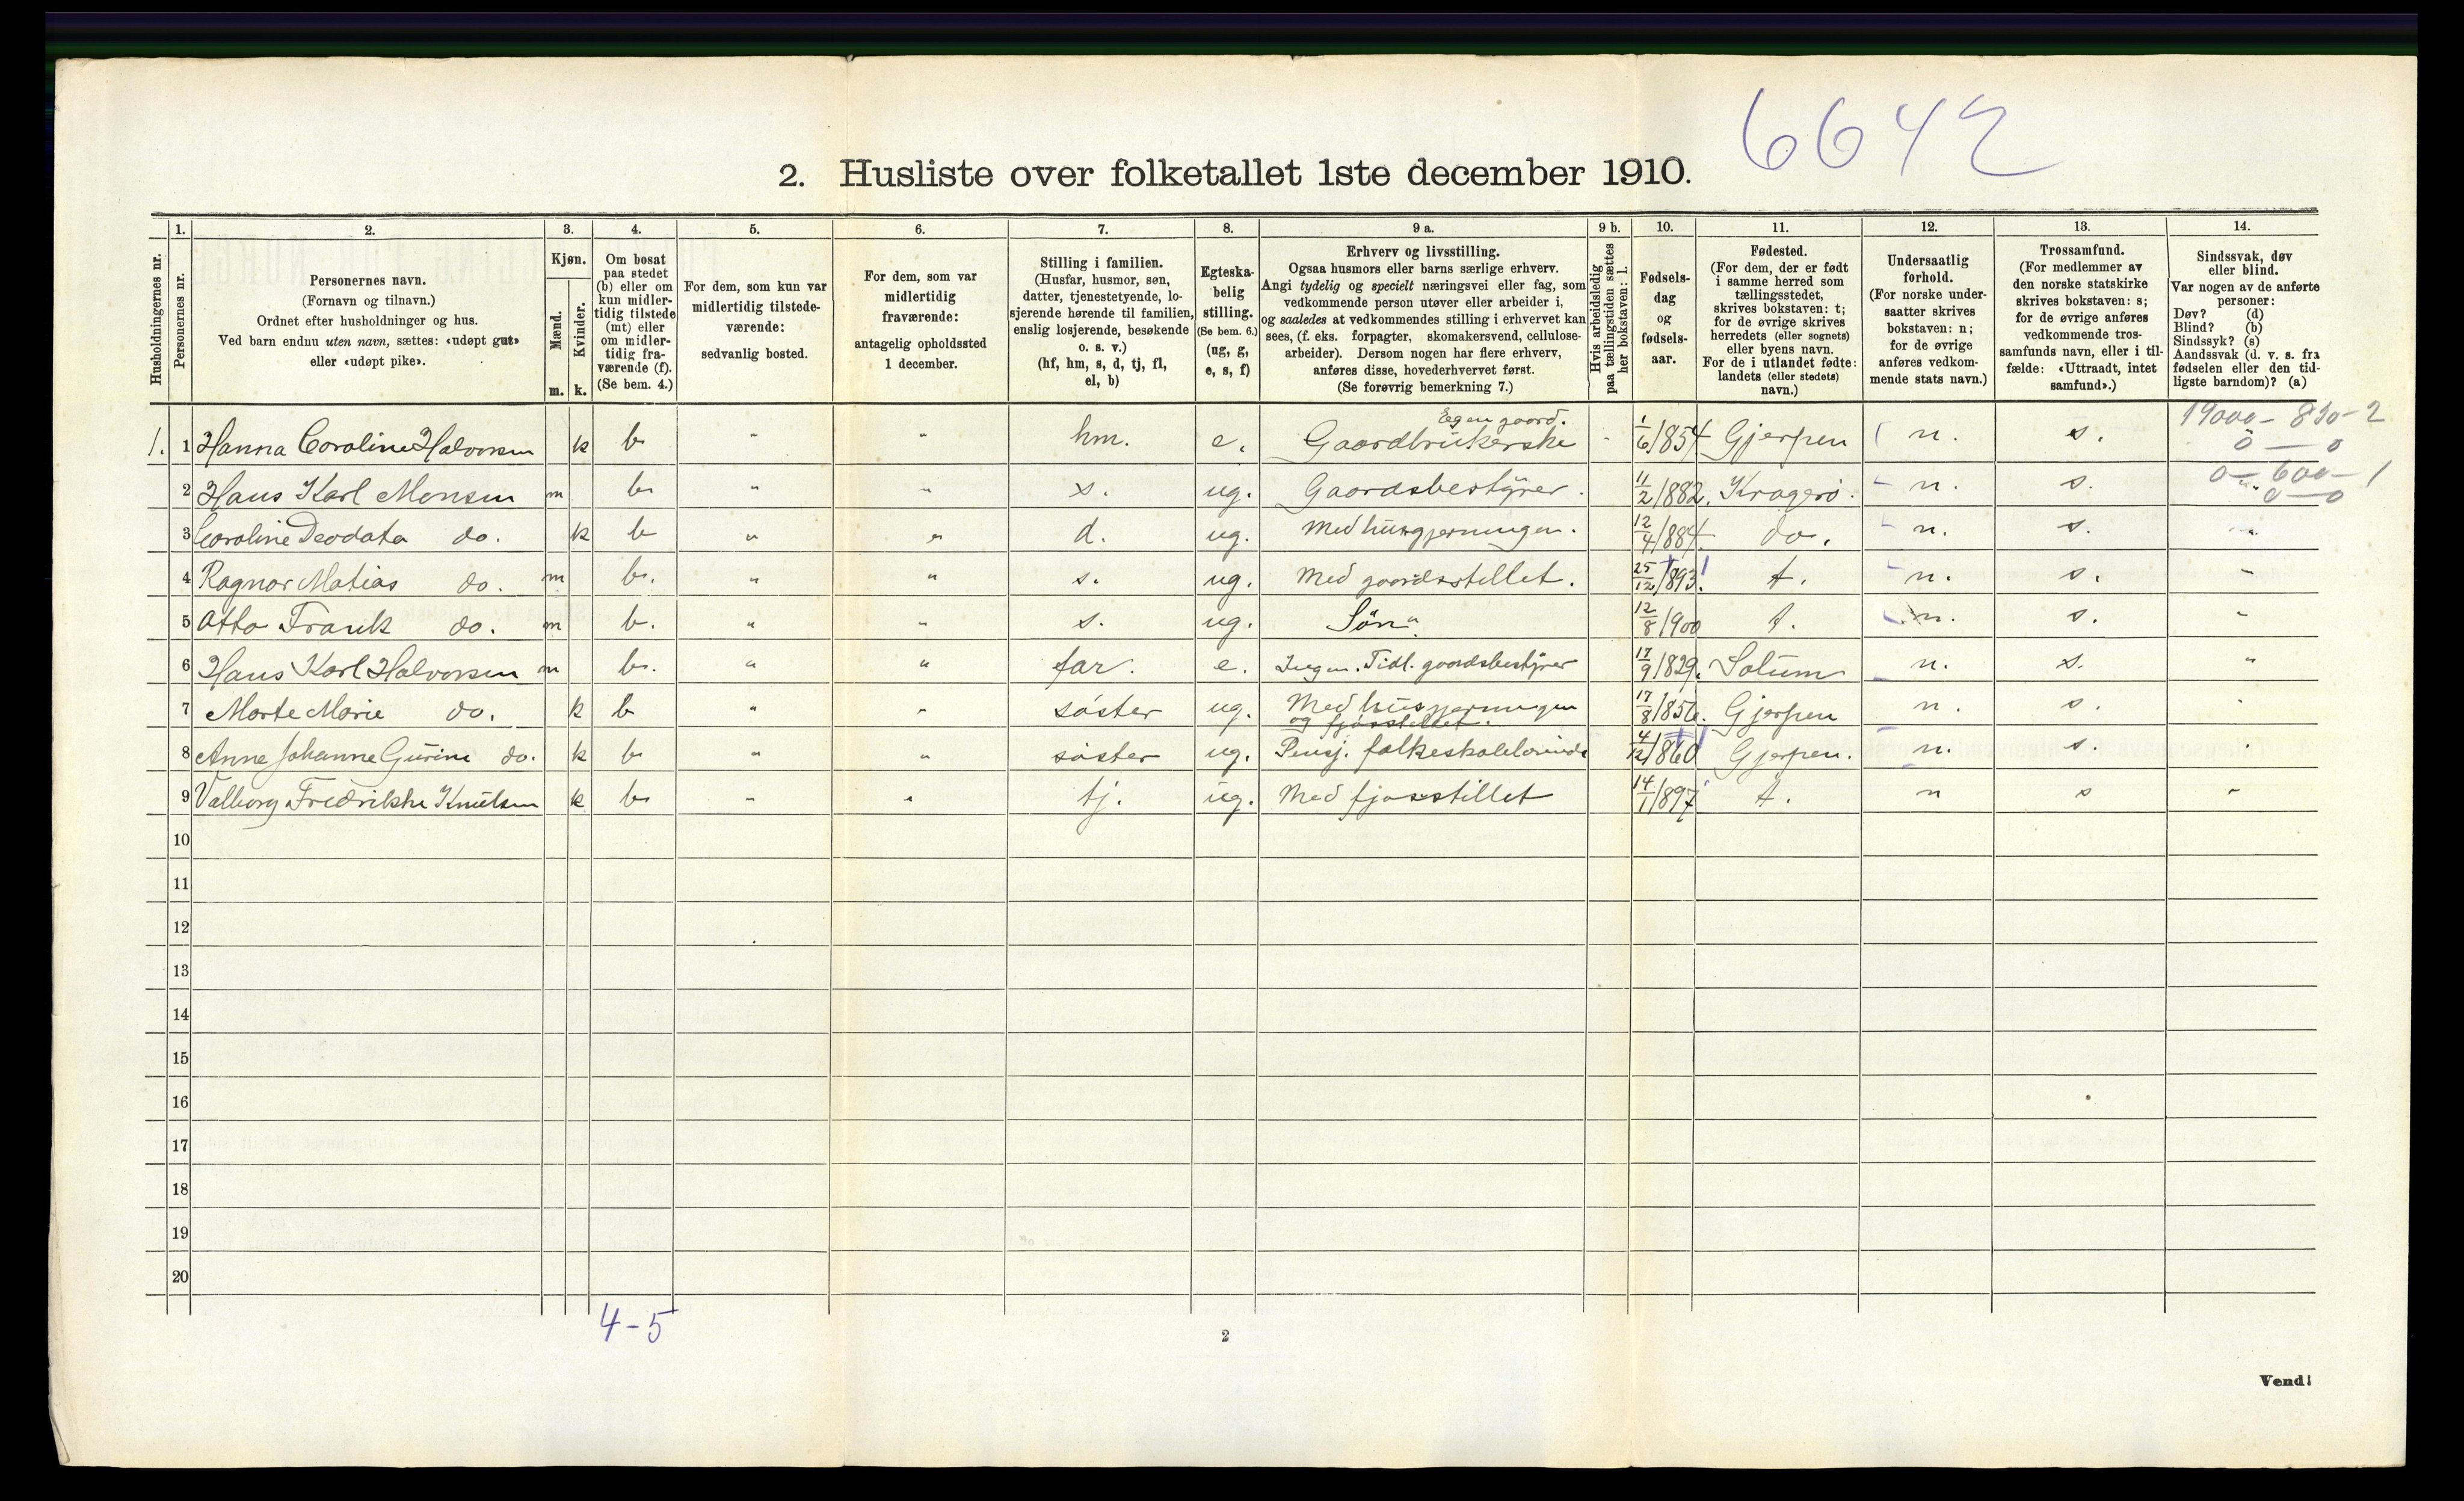 6642
2. Husliste over folketallet 1ste december 1910.
Husholdningernes nr.
1.
Personernes nr.
2.
Personernes navn.
(Fornavn og tilnavn.)
Ordnet efter husholdninger og hus.
Ved barn endnu uten navn, sættes: «udøpt gut»
eller «udøpt pike».
3.
Kjøn.
Mænd.
Kvinder.
m. k.
4.
Om bosat
paa stedet
(b) eller om
kun midler-
tidig tilstede
(mt) eller
om midler-
tidig fra-
værende (f).
(Se bem. 4.)
5.
For dem, som kun var
midlertidig tilstede-
værende:
sedvanlig bosted.
6.
For dem, som var
midlertidig
fraværende:
antagelig opholdssted
1 december.
7.
Stilling i familien.
(Husfar, husmor, søn,
datter, tjenestetyende, lo-
sjerende hørende til familien,
enslig losjerende, besøkende
o. s. v.)
(hf, hm, s, d, tj, fl,
el, b)
8.
Egteska-
belig
stilling.
(Se bem. 6.)
(ug, g,
e, s, f)
9 a.
Erhverv og livsstilling.
Ogsaa husmors eller barns særlige erhverv.
Angi tydelig og specielt næringsvei eller fag, som
vedkommende person utøver eller arbeider i,
og saaledes at vedkommendes stilling i erhvervet kan
sees, (f. eks. forpagter, skomakersvend, cellulose-
arbeider). Dersom nogen har flere erhverv,
anføres disse, hovederhvervet først.
(Se forøvrig bemerkning 7.)
9 b.
Hvis arbeidsledig
paa tællingstiden sættes
her bokstaven: l.
10.
Fødsels-
dag
og
fødsels-
aar.
11.
Fødested.
(For dem, der er født
i samme herred som
tællingsstedet,
skrives bokstaven: t;
for de øvrige skrives
herredets (eller sognets)
eller byens navn.
For de i utlandet fødte:
landets (eller stedets)
navn.)
12.
Undersaatlig
forhold.
(For norske under-
saatter skrives
bokstaven: n;
for de øvrige
anføres vedkom-
mende stats navn.)
13.
Trossamfund.
(For medlemmer av
den norske statskirke
skrives bokstaven: s;
for de øvrige anføres
vedkommende tros-
samfunds navn, eller i til-
fælde: «Uttraadt, intet
samfund».)
14.
Sindssvak, døv
eller blind.
Var nogen av de anførte
personer:
Døv? (d)
Blind? (b)
Sindssyk? (s)
Aandssvak (d. v. s. fra
fødselen eller den tid-
ligste barndom)? (a)
Egen gaard. 19000 - 830 - 2
1. 1 Hanna Caroline Halvorsen k b " " hm. e. Gaardbrukerske - 1/6 1854 Gjerpen n. s. 0 — 0
2 Hans Karl Monsen m b " " s. ug. Gaardsbestyrer. 11/2 1882. Kragerø. n. s. 0 - 600 - 1
0 — 0
3 Caroline Deodata do. k b " " d. ug. Med husgjerningen. 12/4 1884 do. n. s. "
4 Ragnar Matias do. m b. " " s. ug. Med gaardsstellet. 25/12 1893. t. n. s. "
5 Otto Frank do. m b. " " s. ug. Søn 12/8 1900 t. n. s. "
6 Hans Karl Halvorsen m b. " " far. e. Ingen. Tidl. gaardsbestyrer 17/9 1829. Solum n. s. "
7 Marte Marie do. k b " " søster ug. Med husgjerningen 17/8 1856. Gjerpen n. s. "
og fjøsstellet.
8 Anne Johanne Gurine do. k b " " søster ug. Pensj. folkeskolelærinde 4/12 1860 Gjerpen. n. s. "
9 Valborg Fredrikke Knutsen k b " " tj. ug. Med fjøsstillet 14/1 1897 t. n s "
10
11
12
13
14
15
16
17
18
19
20
4-5
2
Vend!